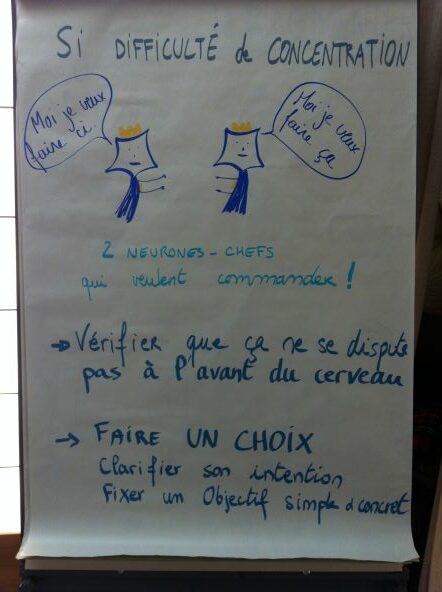 SI DIFFICULTÉ de CONCENTRATION
Moi je veux
faire ci.
Moi je veux
faire ça
2 NEURONES-CHEFS
qui veulent commander !
→ Vérifier que ça ne se dispute
pas à l'avant du cerveau
→ FAIRE UN CHOIX
Clarifier son intention
Fixer un Objectif simple & concret